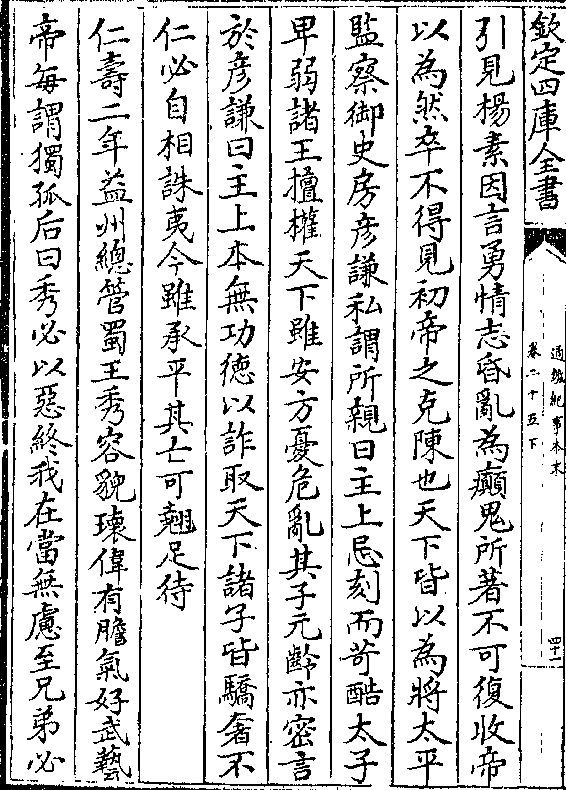 欽定四庫全書
通鑑紀事本末
卷二十五下
四十一
引見楊素因言勇情志昏亂為癲鬼所著不可復收帝
以為然卒不得見初帝之克陳也天下皆以為將太平
監察御史房彥謙私謂所親曰主上忌刻而苛酷太子
卑弱諸王擅權天下雖安方憂危亂其子元齡亦密言
於彥謙曰主上本無功德以詐取天下諸子皆驕奢不
仁必自相誅夷今雖承平其亡可翹足待
仁壽二年益州總管蜀王秀容貌瓌偉有膽氣好武藝
帝每謂獨孤后曰秀必以惡終我在當無慮至兄弟必